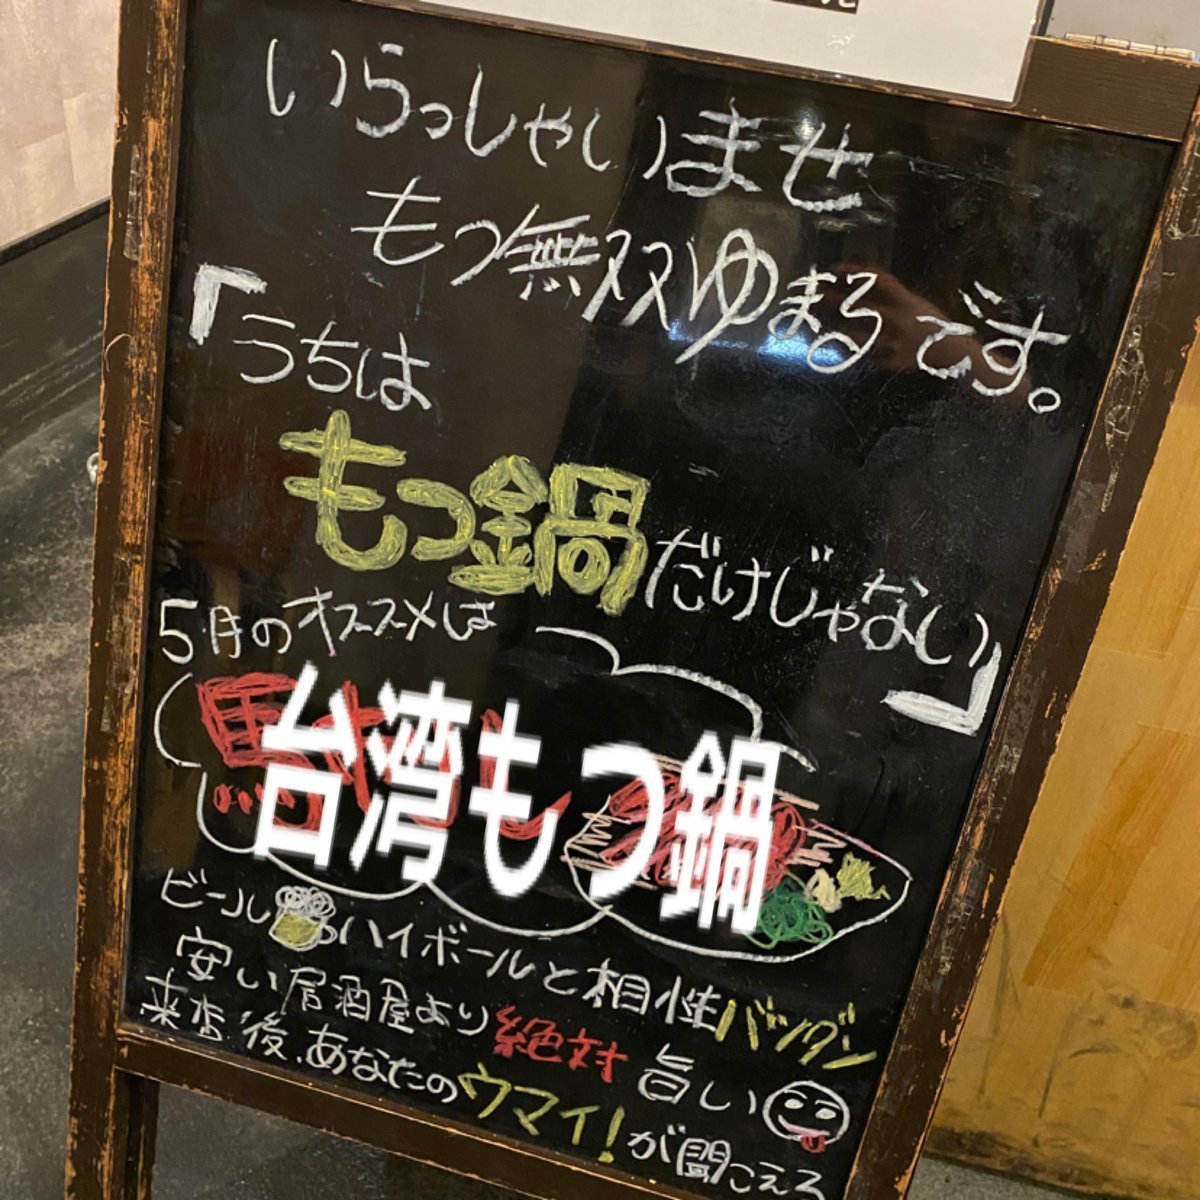 いらっしゃいませ
もつ無双ゆまるです。
「うちは
もつ鍋だけじゃない」
5月のオススメは
台湾もつ鍋
ビールハイボールと相性バツグン
安い居酒屋より絶対旨い
来店後、あなたのウマイ!が聞こえる